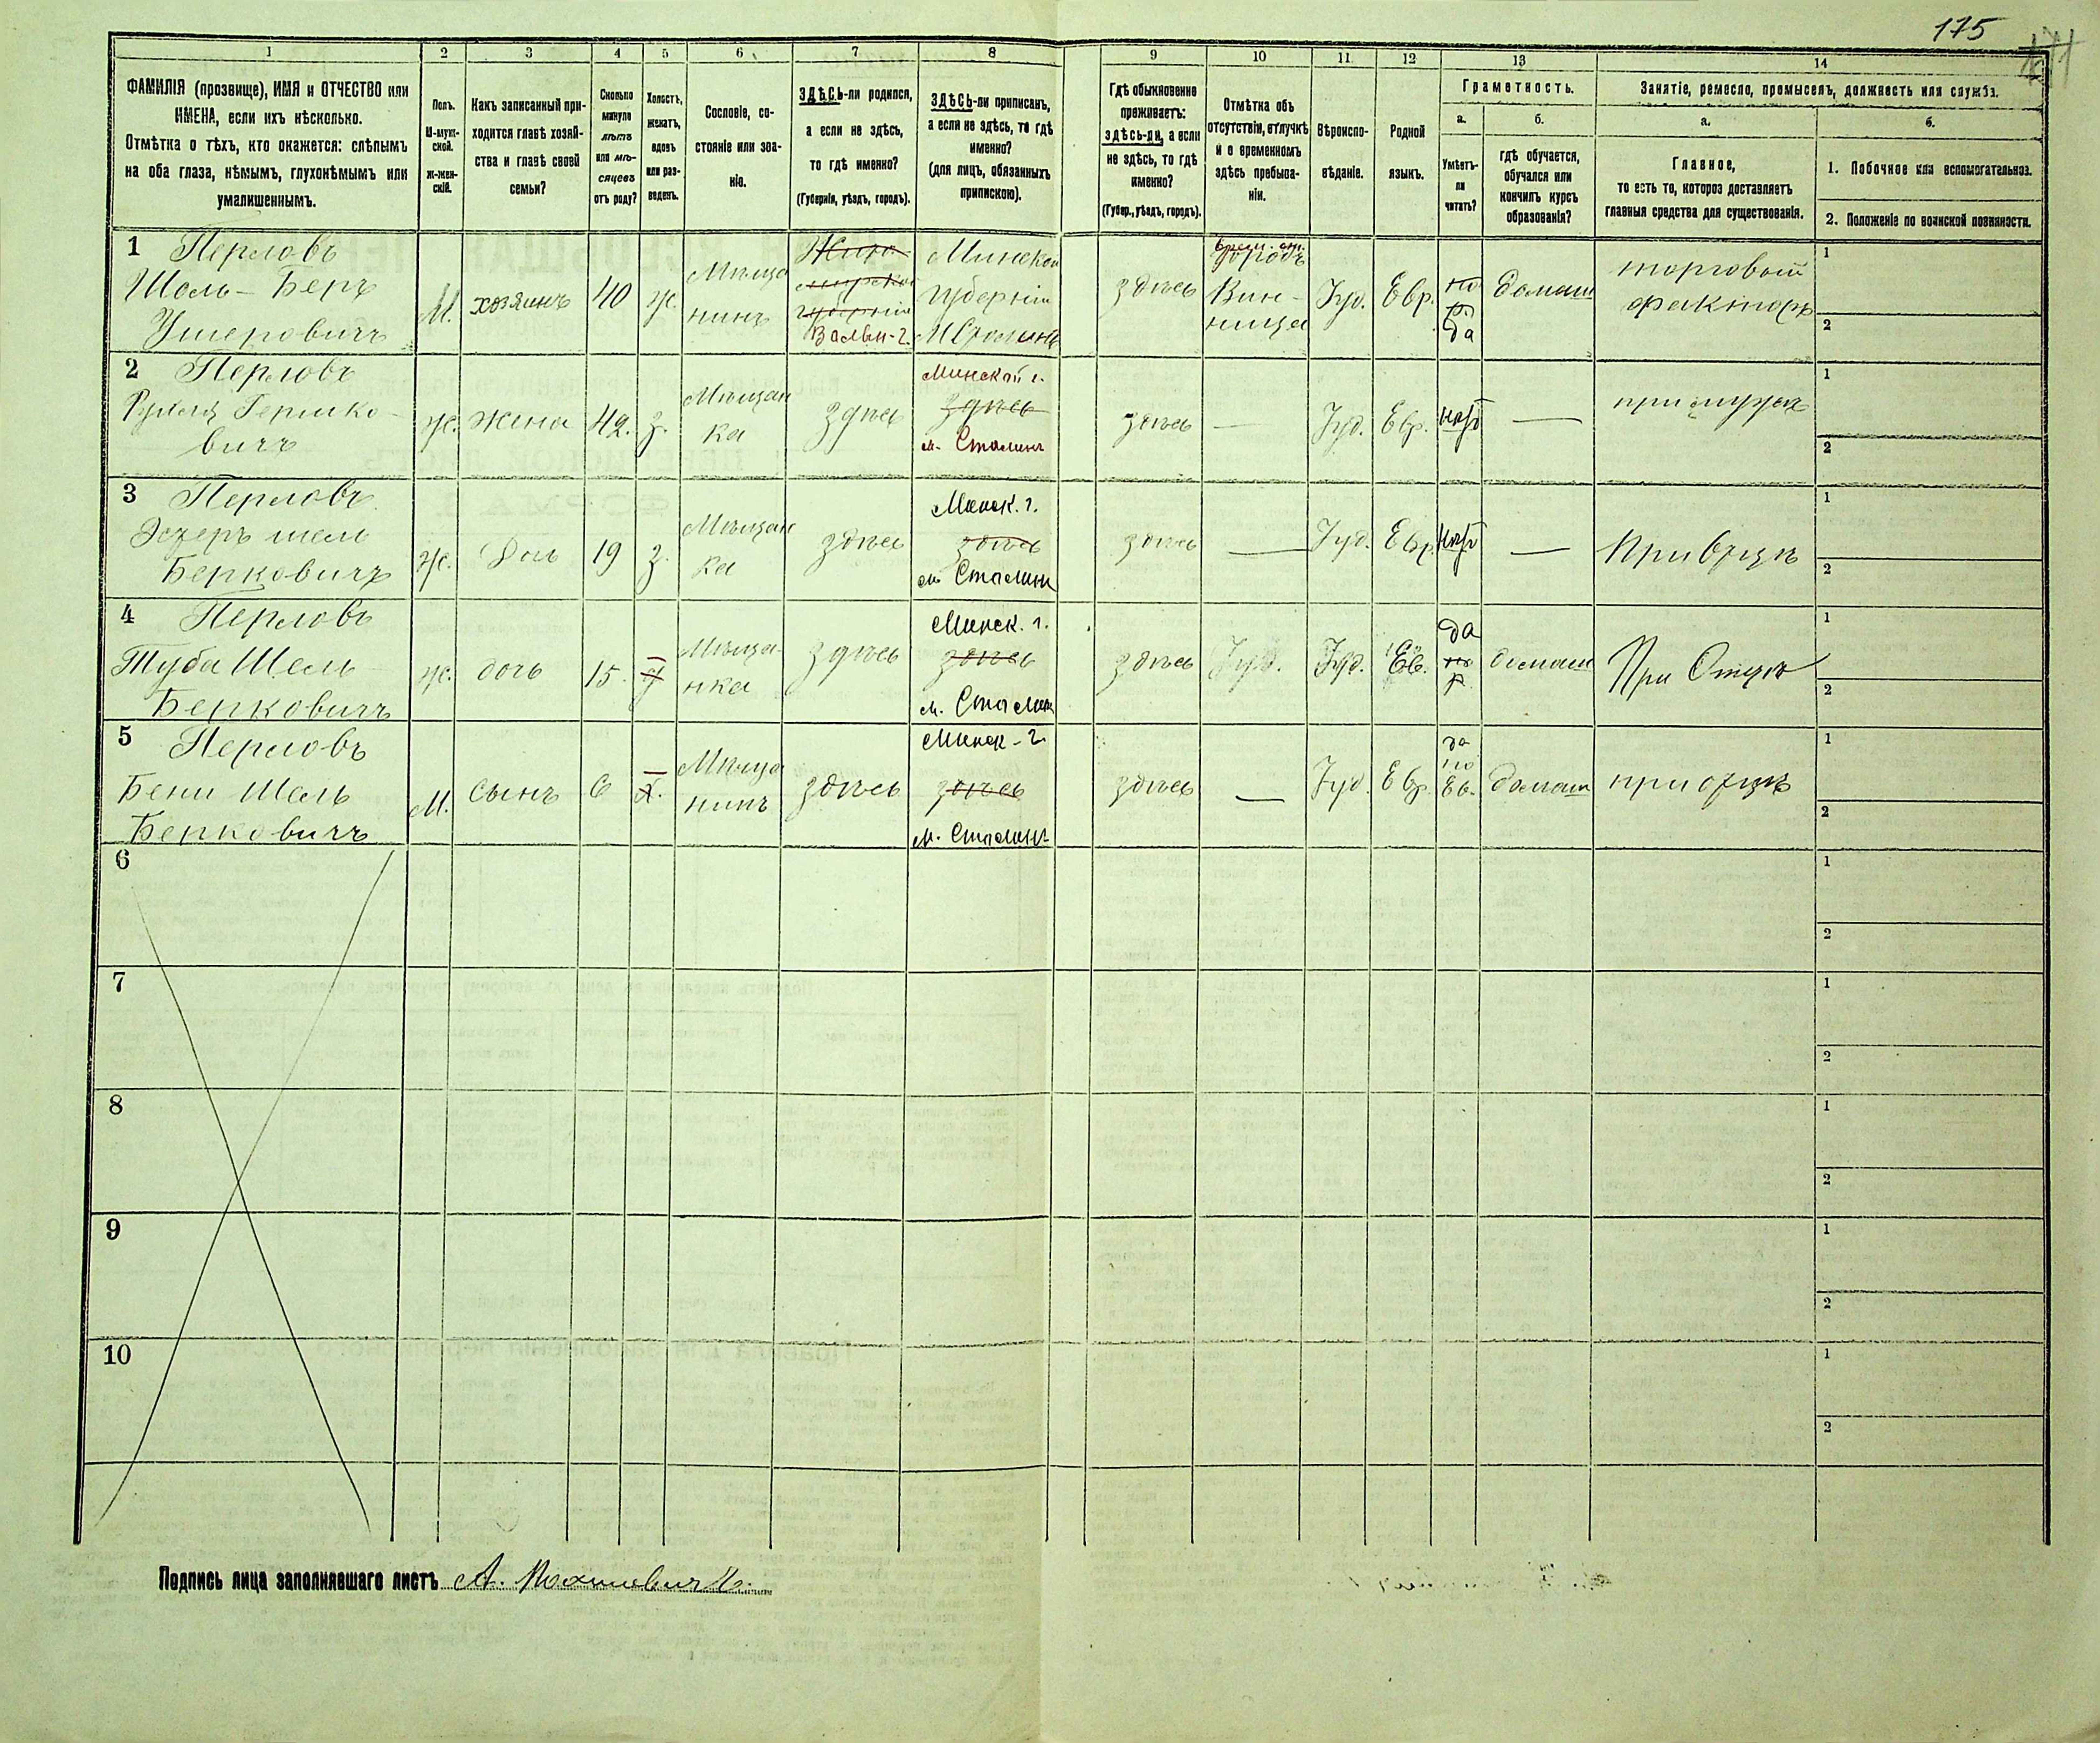 175
1 2 3 4 5 6 7 8 9 10 11 12 13 14
ФАМИЛІЯ (прозвище), ИМЯ и ОТЧЕСТВО или
ИМЕНА, если ихъ нѣсколько.
Отмѣтка о тѣхъ, кто окажется: слѣпымъ
на оба глаза, нѣмымъ, глухонѣмымъ или
умалишеннымъ.
Полъ.
М-муж-
ской.
Ж-жен-
скій.
Какъ записанный при-
ходится главѣ хозяй-
ства и главѣ своей
семьи?
Сколько
минуло
лѣтъ
или мѣ-
сяцевъ
отъ роду?
Холостъ,
женатъ,
вдовъ
или раз-
веденъ.
Сословіе, со-
стояніе или зва-
ніе.
ЗДѢСЬ-ли родился,
а если не здѣсь,
то гдѣ именно?
(Губернія, уѣздъ, городъ).
ЗДѢСЬ-ли приписанъ,
а если не здѣсь, то гдѣ
именно?
(для лицъ, обязанныхъ
припискою).
Гдѣ обыкновенно
проживаетъ:
здѣсь-ли, а если
не здѣсь, то гдѣ
именно?
(Губер., уѣздъ, городъ).
Отмѣтка объ
отсутствіи, отлучкѣ
и о временномъ
здѣсь пребыва-
ніи.
Вѣроиспо-
вѣданіе.
Родной
языкъ.
Грамотность.
а.
Умѣетъ-
ли
читать?
б.
гдѣ обучается,
обучался или
кончилъ курсъ
образованія?
Занятіе, ремесло, промыселъ, должность или служба.
а.
Главное,
то есть то, которое доставляетъ
главныя средства для существованія.
б.
1. Побочное или вспомогательное.
2. Положеніе по воинской повинности.
1 Перловъ
Шоль-Беръ
Ушеровичъ
М.
хозяинъ
40
ж.
Мѣща
нинъ
губерніи
Волын-г.
Минской
губерніи
здѣсь
городъ
Вин-
ница
Іуд.
Евр.
по
р.
да
домаш
торговый
факторъ
1
2
2 Перловъ
Гершко-
вичъ
ж.
жена
42.
з.
Мѣщан
ка
здѣсь
Минской г.
здѣсь
м. Столинъ
здѣсь
—
Іуд.
Евр.
нѣт
—
при мужѣ
1
2
3 Перловъ
Эстеръ шель
Берковичъ
ж.
Доч
19
з.
Мѣщан
ка
здѣсь
Минск. г.
здѣсь
м. Столинъ
здѣсь
—
Іуд.
Евр.
нѣт
—
При отцѣ
1
2
4 Перловъ
Туба Шель
Берковичъ
ж.
дочь
15.
Мѣща-
нка
здѣсь
Минск. г.
здѣсь
м. Столинъ
здѣсь
Іуд.
Іуд.
Ев.
да
по
р.
домаш
При Отцѣ
1
2
5 Перловъ
Бени Шель
Берковичъ
М.
Сынъ
6
х.
Мѣща
нинъ
здѣсь
Минск-г.
здѣсь
м. Столинъ
здѣсь
—
Іуд.
Евр.
да
по
Ев.
домаш
при отцѣ
1
2
6
1
2
7
1
2
8
1
2
9
1
2
10
1
2
Подпись лица заполнявшаго листъ А.